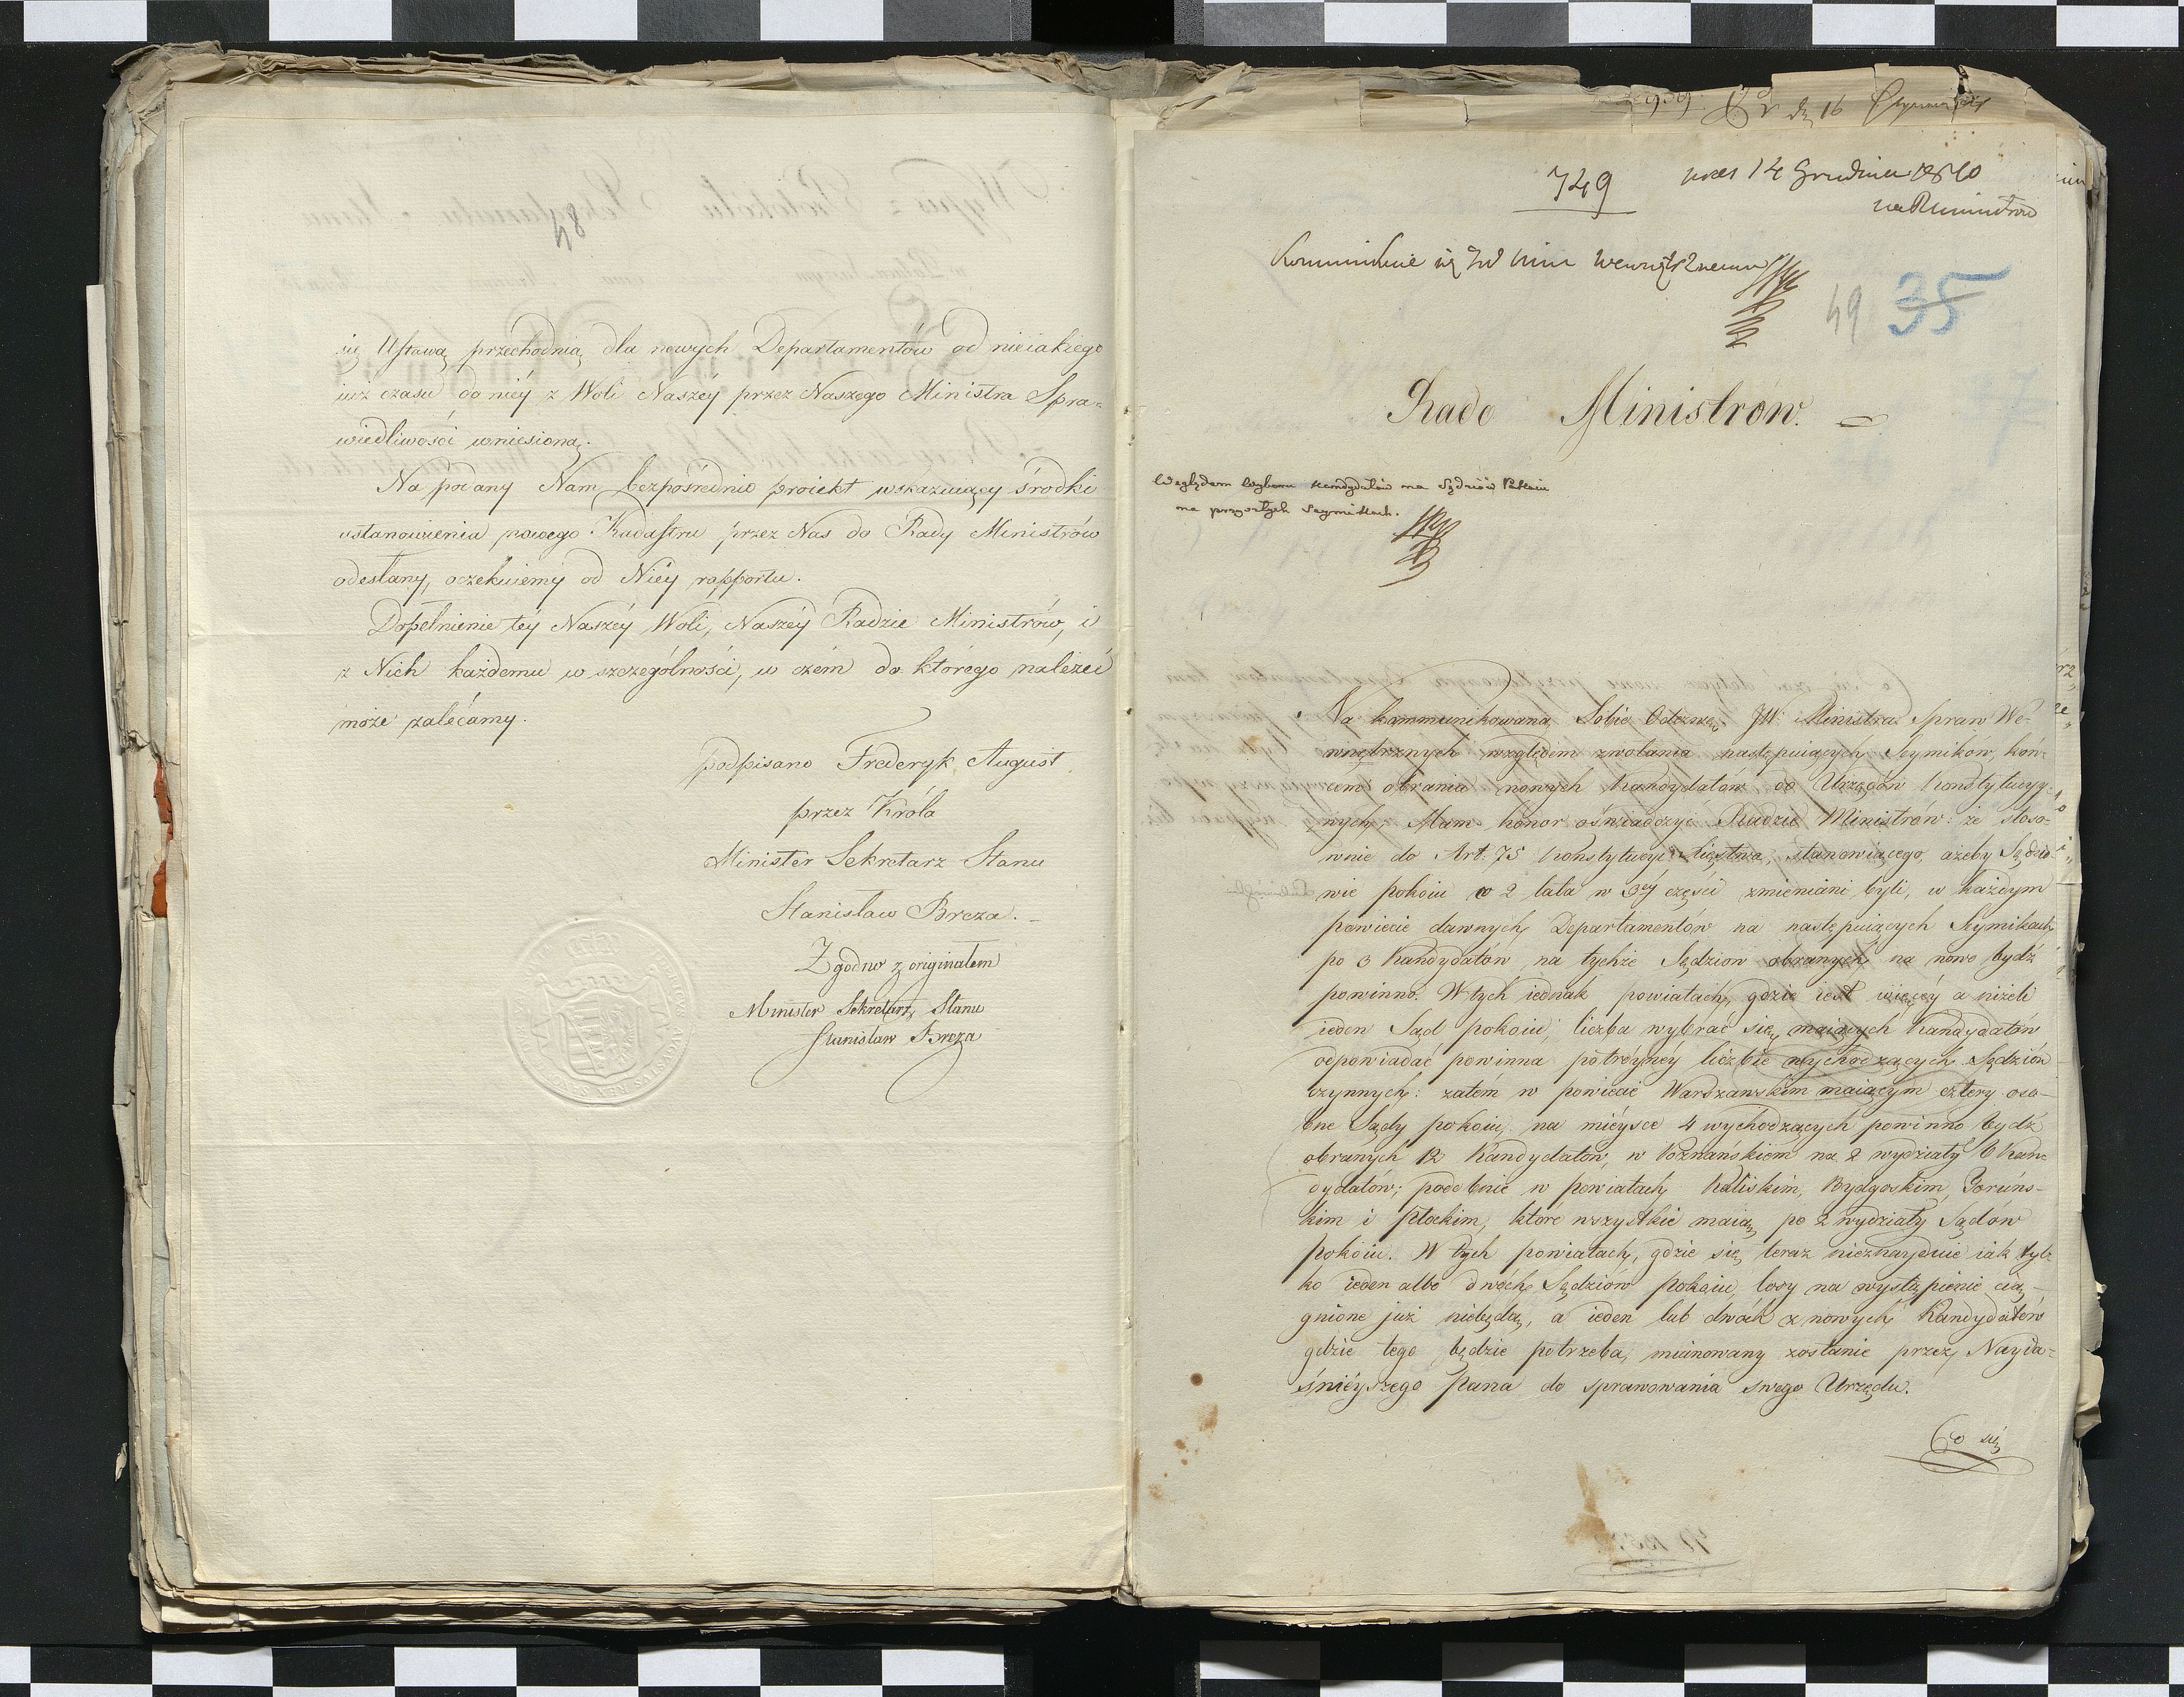 się Ustawą przechodnią dla nowych Departamentów od nieiakiego
iuż czasu do niéy z Woli Naszéy przez Naszego Ministra Spra-
wiedliwości wniesioną.
Na podany Nam bezpośrednio proiekt wskazuiący środki
ustanowienia nowego Kadastru przez Nas do Rady Ministrów
odesłany, oczekuiemy od Niéy rapportu.
Dopełnienie téy Naszéy Woli, Naszéy Radzie Ministrów, i
z Nich każdemu w szczególności, w czém do którego należeć
może zalecamy.
podpisano Frederyk August
przez Króla
Minister Sekretarz Stanu
Stanisław Breza.
Zgodno z originałem
Minister Sekretarz Stanu
Stanisław Breza
16
749
14 Grudnia 1810
Kommunikuie się JW Min Wewnętrznemu
49 35
Rado Ministrów.
Względem Wyboru Kandydatów na Sędziów Pokoiu
na przyszłych Seymikach.
Na kommunikowaną Sobie Odezwę JW. Ministra Spraw We-
wnętrznych względem zwołania następuiących Seymików, koń-
cem obrania nowych Kandydatów do Urzędów Konstytucyy-
nych, Mam honor oświadczyć Radzie Ministrów: że stoso-
wnie do Art. 75 Konstytucyi Xięstwa, stanowiącego, ażeby Sędzio-
wie pokoiu co 2 lata w 3éy części zmieniani byli, w każdym
powiecie dawnych Departamentów na następuiących Seymikach
po 3 Kandydatów na tychże Sędziów obranych na nowo bydź
powinno. W tych iednak powiatach, gdzie iest więcéy a niżeli
ieden Sąd pokoiu, liczba wybrać się maiących Kandydatów
odpowiadać powinna potróynéy liczbie wychodzących Sędziów
czynnych: zatém w powiecie Warszawskim maiącym cztery oso-
bne Sądy pokoiu, na miéysce 4 wychodzących powinno bydź
obranych 12 Kandydatów, w Poznańskiem na 2 wydziały 6 Kan-
dydatów; podobnie w powiatach Kaliskim, Bydgoskim, Toruńs-
kim i Płockim, które wszystkie maią po 2 wydziały Sądów
pokoiu. W tych powiatach, gdzie się teraz nieznayduie iak tyl-
ko ieden albo dwóch Sędziów pokoiu, losy na wystąpienie cią-
gnione już niebędą, a ieden lub dwóch z nowych Kandydatów
gdzie tego będzie potrzeba, mianowany zostanie przez Nayia-
śniéyszego Pana do sprawowania swego Urzędu.
Co się